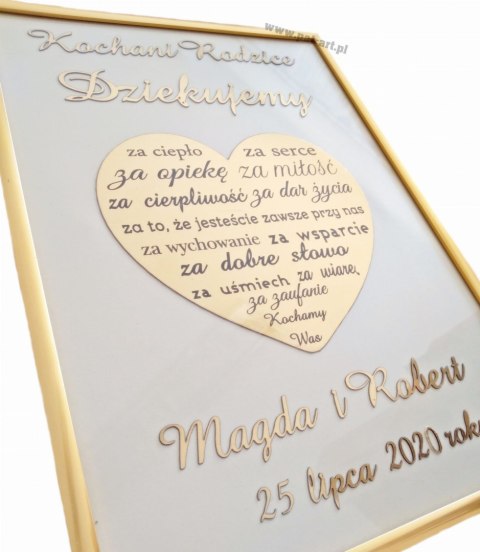 Kochani Rodzice
Dziękujemy
za ciepło za serce
za opiekę za miłość
za cierpliwość za dar życia
za to, że jesteście zawsze przy nas
za wychowanie za wsparcie
za dobre słowo
za uśmiech za wiarę,
za zaufanie
Kochamy
Was
Magda i Robert
25 lipca 2020 roku